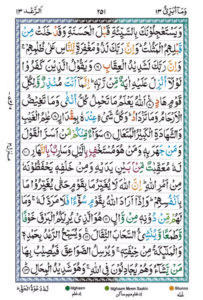 وَمَآ اُبَرِّئُ ١٣ ٢٥١ اَلرَّعْد ١٣
وَيَسْتَعْجِلُوْنَكَ بِالسَّيِّئَةِ قَبْلَ الْحَسَنَةِ وَقَدْ خَلَتْ مِنْ
قَبْلِهِمُ الْمَثُلٰتُ ؕ وَاِنَّ رَبَّكَ لَذُوْ مَغْفِرَةٍ لِّلنَّاسِ عَلٰى ظُلْمِهِمْ ۚ
وَاِنَّ رَبَّكَ لَشَدِيْدُ الْعِقَابِ ۝ وَيَقُوْلُ الَّذِيْنَ كَفَرُوْا
لَوْلَاۤ اُنْزِلَ عَلَيْهِ اٰيَةٌ مِّنْ رَّبِّهٖ ؕ اِنَّمَاۤ اَنْتَ مُنْذِرٌ وَّلِكُلِّ
قَوْمٍ هَادٍ ۝ اَللّٰهُ يَعْلَمُ مَا تَحْمِلُ كُلُّ اُنْثٰى وَمَا تَغِيْضُ
الْاَرْحَامُ وَمَا تَزْدَادُ ؕ وَكُلُّ شَيْءٍ عِنْدَهٗ بِمِقْدَارٍ ۝ عٰلِمُ الْغَيْبِ
وَالشَّهَادَةِ الْكَبِيْرُ الْمُتَعَالِ ۝ سَوَآءٌ مِّنْكُمْ مَّنْ اَسَرَّ الْقَوْلَ
وَمَنْ جَهَرَ بِهٖ وَمَنْ هُوَ مُسْتَخْفٍۭ بِالَّيْلِ وَسَارِبٌۢ بِالنَّهَارِ ۝
لَهٗ مُعَقِّبٰتٌ مِّنْۢ بَيْنِ يَدَيْهِ وَمِنْ خَلْفِهٖ يَحْفَظُوْنَهٗ
مِنْ اَمْرِ اللّٰهِ ؕ اِنَّ اللّٰهَ لَا يُغَيِّرُ مَا بِقَوْمٍ حَتّٰى يُغَيِّرُوْا مَا
بِاَنْفُسِهِمْ ؕ وَاِذَاۤ اَرَادَ اللّٰهُ بِقَوْمٍ سُوْٓءًا فَلَا مَرَدَّ لَهٗ ۚ وَمَا
لَهُمْ مِّنْ دُوْنِهٖ مِنْ وَّالٍ ۝ هُوَ الَّذِيْ يُرِيْكُمُ الْبَرْقَ خَوْفًا
وَّطَمَعًا وَّيُنْشِئُ السَّحَابَ الثِّقَالَ ۝ وَيُسَبِّحُ الرَّعْدُ بِحَمْدِهٖ
وَالْمَلٰٓئِكَةُ مِنْ خِيْفَتِهٖ ۚ وَيُرْسِلُ الصَّوَاعِقَ فَيُصِيْبُ بِهَا
مَنْ يَّشَآءُ وَهُمْ يُجَادِلُوْنَ فِي اللّٰهِ ۚ وَهُوَ شَدِيْدُ الْمِحَالِ ۝